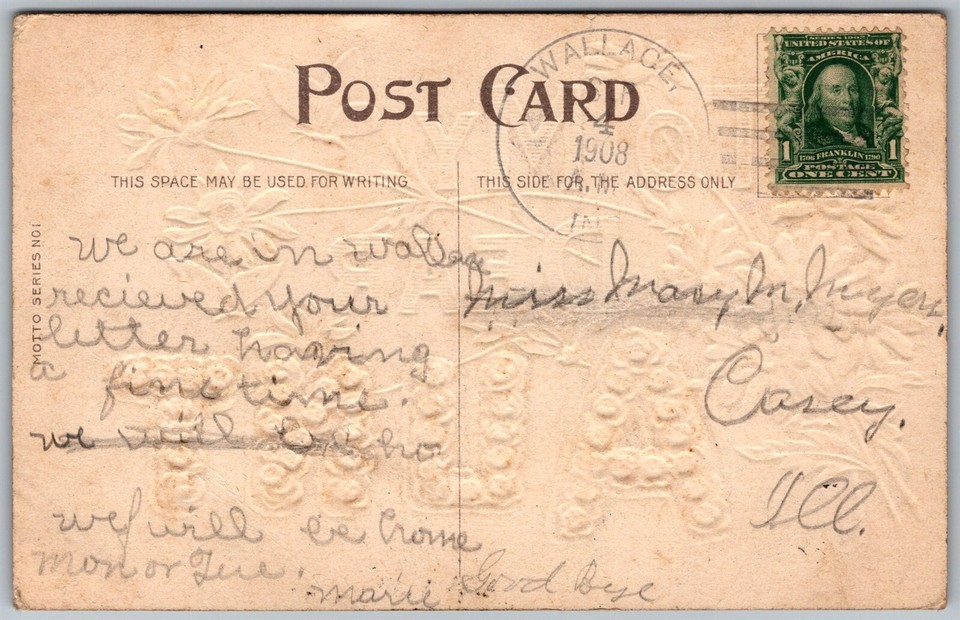 POST CARD
THIS SPACE MAY BE USED FOR WRITING
THIS SIDE FOR THE ADDRESS ONLY
MOTTO SERIES NO1
WALLACE,
4
1908
A.M.
IND
SERIES 1902
UNITED STATES OF
AMERICA
1 1
1706 FRANKLIN 1790
POSTAGE
ONE CENT
we are in wallace
recieved your
letter having
a fine time.
we will be ho
we will be home
mon or Tue.
marie Good Bye
Miss Mary M. Myers,
Casey.
Ill.